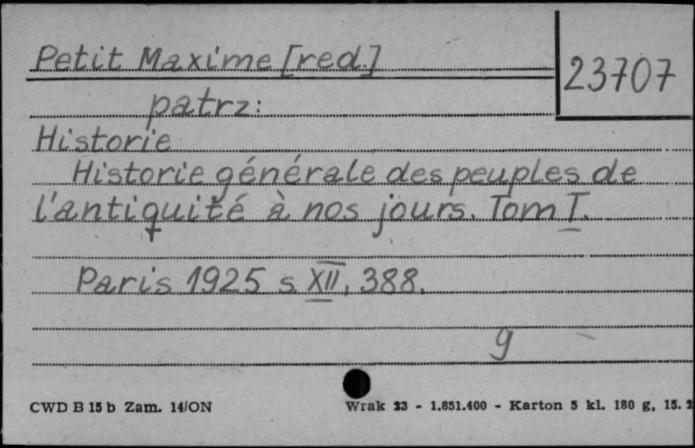 Petit Maxime [red.]
23707
patrz:
Historie
Historie générale des peuples de
l'antiquité à nos jours. Tom I.
Paris 1925 s XII, 388.
g
CWD B 15 b Zam. 14/ON
Wrak 23 - 1.851.400 - Karton 5 kl. 180 g, 15. 2